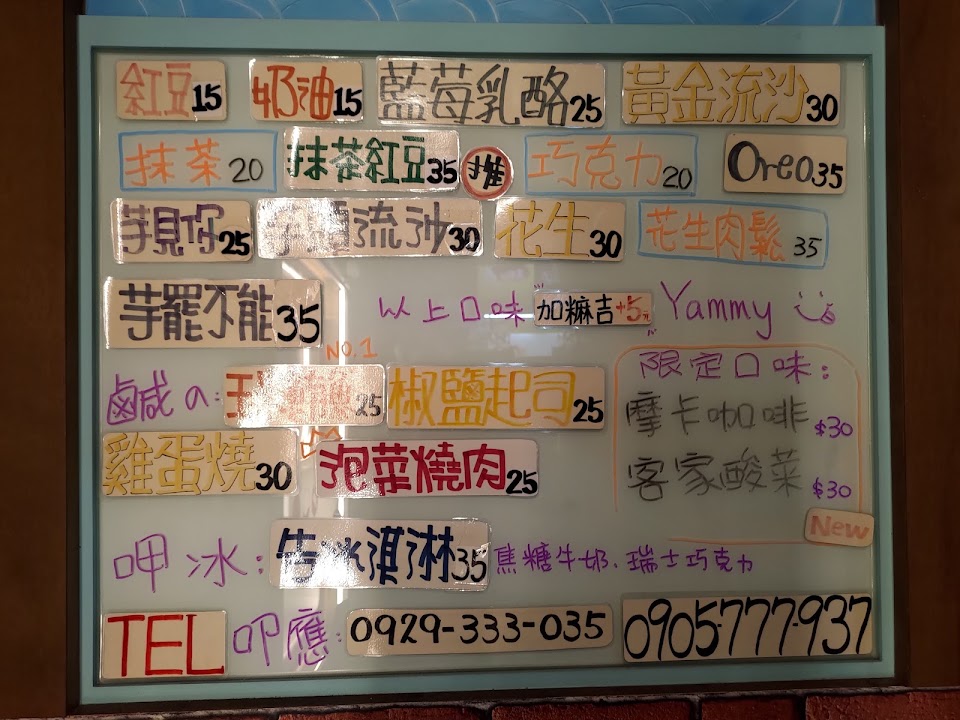 紅豆15 奶油15 藍莓乳酪25 黃金流沙30
抹茶20 抹茶紅豆35 推 巧克力20 Oreo35
芋見你25 芋頭流沙30 花生30 花生肉鬆35
芋罷不能35 以上口味 加糯吉+5元 Yammy
NO.1
鹹の: 25 椒鹽起司25
限定口味:
摩卡咖啡 $30
雞蛋燒30 泡菜燒肉25
客家酸菜 $30
New
呷冰: 淇淋35 焦糖牛奶、瑞士巧克力
TEL 叩應: 0929-333-035 0905-777-937